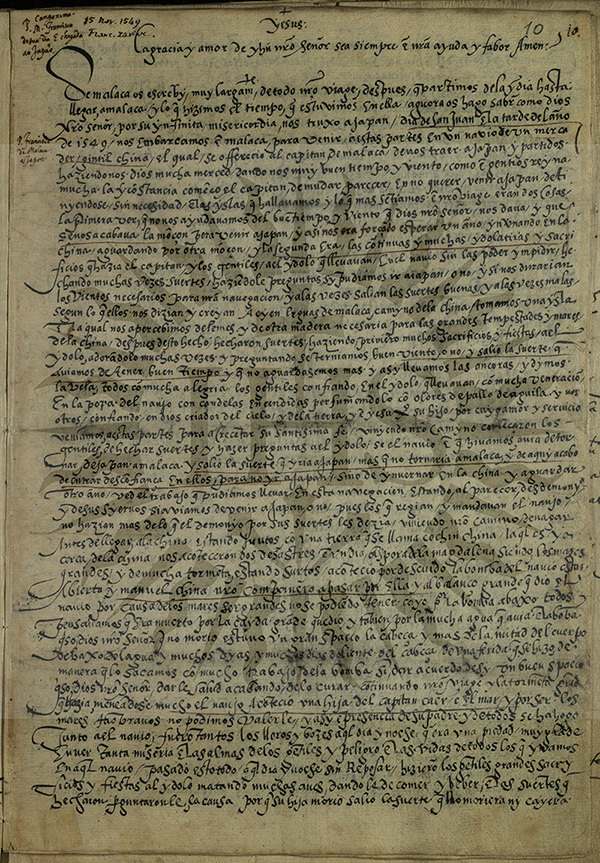 15 Nov. 1549
Yesus:
10
10.
la gracia y amor de yhu nro señor sea siempre ẽ nrã ayuda y fabor Amen:
De malaca os escreby, muy largamte, de todo nro viage, despues, q̃ partimos de la yndia hasta
llegar, a malaca, y lo q̃ hizimos el tiempo, q̃ estuvimos en ella, aguora os hago saber como dios
Nro señor, por su ynfinita misericordia, nos truxo a Japan, dia de san Juan ẽ la tarde del año
de 1549, nos embarcamos ẽ malaca, para venir, a estas partes en vn navio de vn merca
der, gintil china, el qual, se offerecio al capitan de malaca, de nos traer a Japan y partidos
haziendonos, dios mucha merced dando nos muy buen tiempo y viento, como ẽ gentios reyna
mucha la yncostancia comẽço el capitan, de mudar, parecer, en no querer, venir a Japan deti
nyendose, sin necesidad, ẽ las yslas q̃ hallavamos
la primera ver, q̃ no nos ayudavamos del buẽ tiempo, y viento q̃ dios nro señor, nos dava, y que
se nos acabava, la moçon para venir a Japan, y asi nos era forçado esperar un año, ynvernando en la
china, aguardando por otra moçon, y la segunda era, las continuas y muchas, ydolatrias y sacri
ficios q̃ hazia el capitan, y los gentiles, al ydolo q̃ llevavan, en el navio sin las poder ympidir, he
chando muchas vezes suertes, haziẽdole preguntas sy pudiamos ir a Japan, o no, y si nos durarian
los vientos necesarios para nrã navegacion, y a las vezes salian las suertes buenas, y a las vezes malas,
segun lo q̃ ellos nos dizian y creyan. A cyen leguas de malaca, camyno de la china, tomamos una ysla
en la qual nos apercebimos de lemes, y de otra madera necesaria para las grandes Tempestades y mares
de la china, despues desto hecho, hecharon suertes, haziendo primero muchos sacrificios y fiestas, al
ydolo, adorãdolo muchas vezes y preguntandole, se terniamos buen viento, o no, y salio la suerte, q̃
aviamos de tener, buen tiempo y q̃ no aguardazemos mas y asy llevamos las ancoras, y dymos
la vela, todos cõ mucha alegria, los gentiles confiando, en el ydolo, q̃ llevavan, cõ mucha veneraciõ
en la popa, del navio con candelas encendidas perfumiendolo cõ olores de pallo de aguila, y nos
otros, confiando, en dios criador del cielo, y de la tierra, y de yesu xº su hijo, por cuyo amor y servicio
veniamos, a estas partes para acrecetar su santisima fe, vinyendo nro camyno comẽçaron los
gentiles, de hechar suertes y hazer preguntas al ydolo, se el navio ẽ q̃ hivamos avia de tor
nar, de Japan, a malaca, y salio la suerte, q̃ yria a Japan, mas que no tornaria a malaca, y de aquy acabo
de entrar desconfiança en ellos, para no yr a Japan, sino de ynvernar en la china y aguardar
otro año, ved el trabajo q̃ pudiamos llevar en esta navegacion, estando, al parecer, del demonyo
y de sus syervos si aviamos de venir a Japan, o no, pues los q̃ regian, y mandavan el navio,
no hazian mas de lo q̃ el demonyo por sus suertes les dezia, viniendo nro camino, de vagar
antes de llegar, a la china, estando juntos cõ vna tierra q̃ se llama cochinchina, la ql es ya
cerca de la china, nos acotecieron dos desastres ẽ un dia, vispora de la madalena, siẽdo los mares
grandes, y de mucha tormẽta, estando surtos, acõtecio por descuido la bomba del navio estar
abierta, y manuel china nro compañero a pasar por ella y al balanco grande q̃ dio el
navio por causa de los mares ser grandes no se podiẽdo tener, cayo pr la bomba abaxo, todos
pensavamos q̃ era muerto por la cayda grande que dio y tãbien, por la mucha agua q̃ avia ẽ la bõba
quiso dios nro señor q̃ no morio, estuvo vn gran spacio la cabeça y mas de la mitad del cuerpo
debaxo del agua y muchos dyas doliente de la cabeça de vna ferida q̃ se hizo de
manera q̃ lo sacamos cõ mucho trabajo de la bomba si, dar acuerdo de sy vn buen spacio
quiso dios nro señor, darle salud acabandolo de curar, cõtinuando nro viage y la tormẽta grãde
q̃ hazia meneãdose mucho el navio acõtecio una hija del capitan caer, ẽ el mar, y por ser los
mares tan bravos no podimos valerle, y asy ẽ presencia de su padre y de todos se ahogo
junto al navio, fuerõ tantos los lloros, y bozes aq̃l dia y noche q̃ era vna piedad, muy grãde
en ver, tanta miseria, ẽ las almas de los gẽtiles, y peligro ẽ las vidas de todos los q̃ estavamos
en aq̃l navio, pasado esto todo aq̃l dia y noche sin reposar, hiziero los gẽtiles grandes sacri
ficios y fiestas al ydolo matando muchas aves, dandole de comer y beber, ẽ las suertes q̃
hecharon, preguntaronle la causa por q̃ su hija morio, salio la suerte q̃ no moriera ny cayera